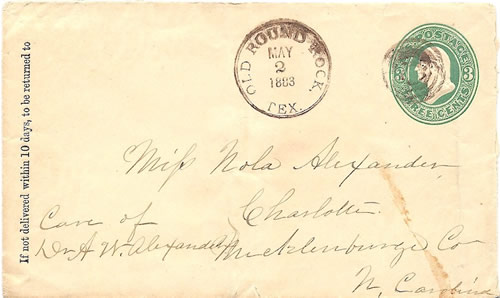 If not delivered within 10 days, to be returned to
OLD ROUND ROCK.
MAY
2
1883
TEX.
POSTAGE
3 3
THREE CENTS
Miss Nola Alexander
Care of Charlotte
Dr A. W. Alexander Mecklenburge Co
N. Carolina